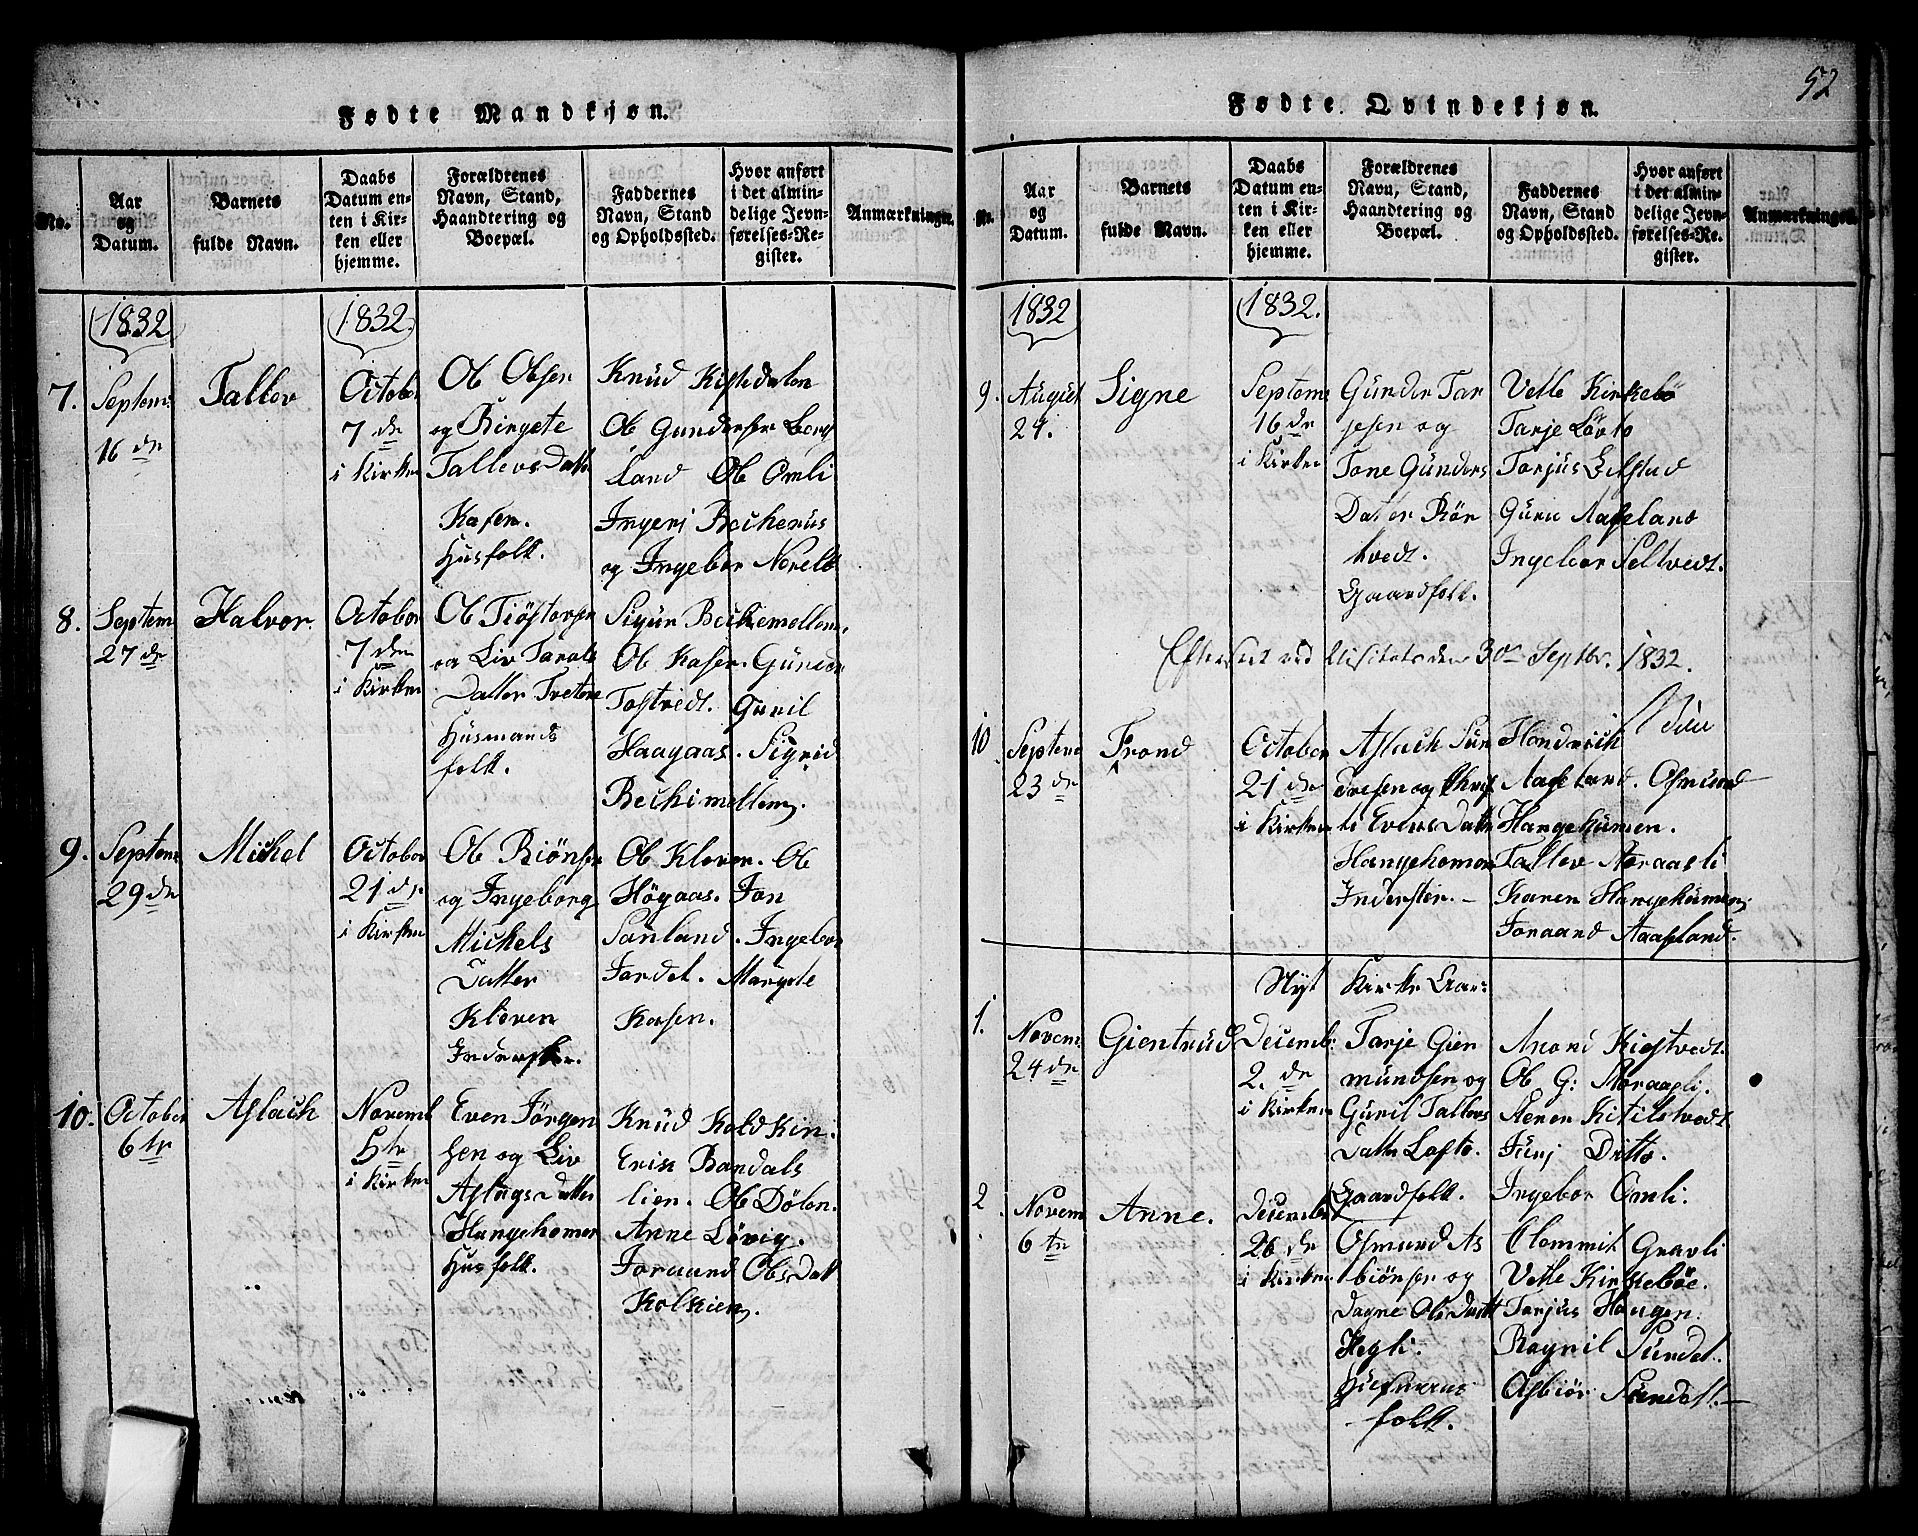 52
Fødte Mandkjøn.
No.
Aar
og
Datum.
Barnets
fulde Navn.
Daabs
Datum en-
ten i Kir-
ken eller
hjemme.
Forældrenes
Navn, Stand,
Haandtering og
Boepæl.
Faddernes
Navn, Stand
og Opholdssted.
Hvor anført
i det almin-
delige Jevn-
førelses-Re-
gister.
Anmærkninger.
1832
1832.
7.
Septem:
16 de
Tallev
October
7 de
i Kirken
Ob Obsen
og Birgete
Tallevs Datter
Kasen.
Husfolk.
Knud
Ob Gundersen
land Ob Omli
Ingerj
og Ingebor
8.
Septem
27 de
Halvor.
October
7 den
i Kirken
Ob Tiöstorsen
og Liv Tarals
Datter Tretene
Husmands
folk.
Sigur Beckemellem,
Ob Kasen. Gunder
Tostvedt. Guril
Haagaas. Sigrid
Beckimellem,
9.
Septem
29 de
Michel
October
21 de
i Kirken
Ob Biönsen
og Ingeborg
Michels
Datter
Kloven
Inderster.
Ob Kloven. Ob
Högaas. Jon
Sanland. Ingebor
Jordet. Margete
Kasen.
10.
October
6 te
Aslach
Novemb
5 te
i Kirken
Even Jörgen
sen og Liv
Aslags Datter
Hangehomen
Husfolk.
Knud Koldkin.
Erik Bandals
lien. Ob Dölen.
Anne Lövig.
Joraand Obs Datt
Kolkien,
Fødte Qvindekjøn.
Nr.
Aar
og
Datum.
Barnets
fulde Navn.
Daabs
Datum en-
ten i Kir-
ken eller
hjemme.
Forældrenes
Navn, Stand,
Haandtering og
Boepæl.
Faddernes
Navn, Stand
og Opholdssted.
Hvor anført
i det almin-
delige Jevn-
førelses-Re-
gister.
Anmærkninger.
1832
1832.
9.
August
24.
Signe
Septem
16 de
i Kirken
Gunder Tar
jesen og
Tone Gunders
Datter Rör
tvedt.
Gaardfolk.
Vetle Kirkebö
Tarje Lövto
Tarjus
Guru Aaseland
Ingebor Seltvedt.
Efterseet ved Visitats den 30 Septbr. 1832.
10
Septem
23 de
Trond
October
21 de
i Kirken
Aslach
og
ti Evens Datter
Hangehomen
Inderster. –
Hendrich
Aaseland. Osmund
Hangehumen.
Tallev Noraasli
Karen Hangehumen,
Joraand Aaseland.
Nyt Kirke Aar:
1.
Novem:
24 de
Gientrud
Decemb:
2. de
i Kirken
Tarje Gier
mundsen og
Guril Tallevs
Datter Lofto.
Gaardfolk.
Anond
Ob G: Noraasli.
Kitilstvedt
Jurj Ditto.
Ingebor Omli.
2.
Novem
6 te
Anne.
Decembr
26 de
i Kirken
Osmund As
biönsen og
Dagne Obs Datt
Hegli.
Husmands
folk.
Clommit Gravli
Vetle Kirkebøe.
Tarjus Haugen
Ragnil Sundet.
Asbiör Sundet.